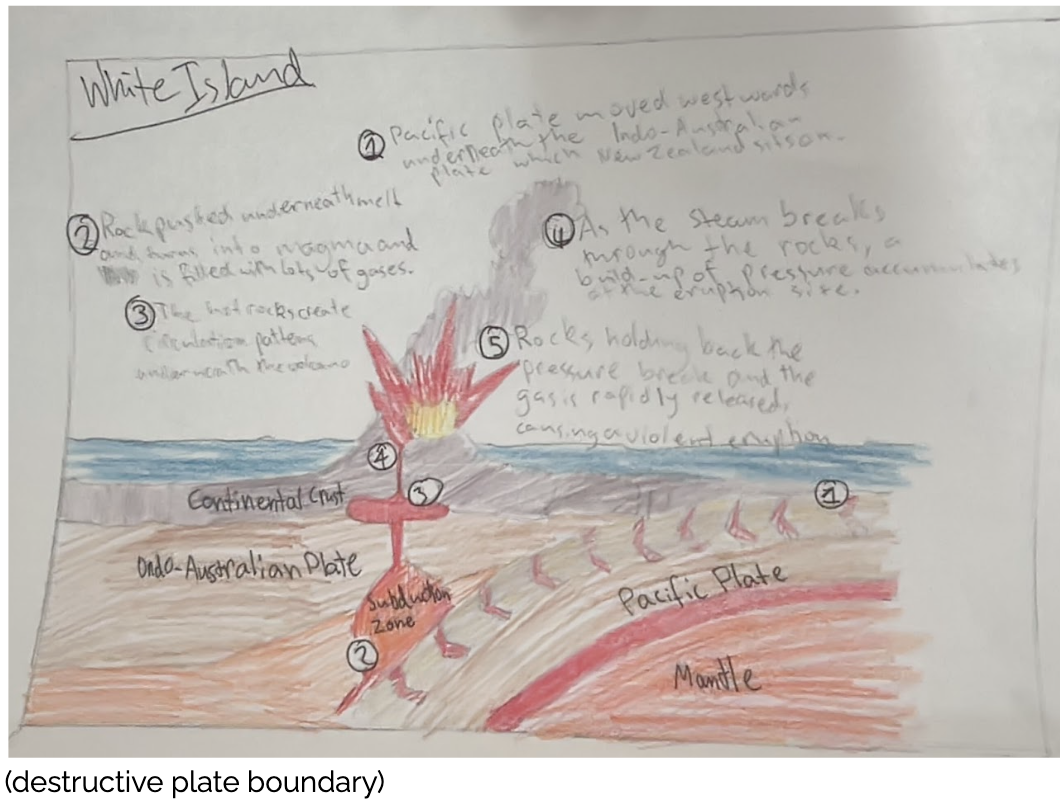 White Island
① Pacific plate moved westwards
underneath the Indo-Australian
plate which New Zealand sits on.
② Rock pushed underneath melt
and turns into magma and
is filled with lots of gases.
③ The hot rocks create
circulation patterns
underneath the volcano
④ As the steam breaks
through the rocks, a
build-up of pressure accumulates
at the eruption site.
⑤ Rocks holding back the
pressure break and the
gas is rapidly released,
causing a violent eruption
④
③
①
Continental Crust
Indo-Australian Plate
Pacific Plate
Subduction
Zone
②
Mantle
(destructive plate boundary)